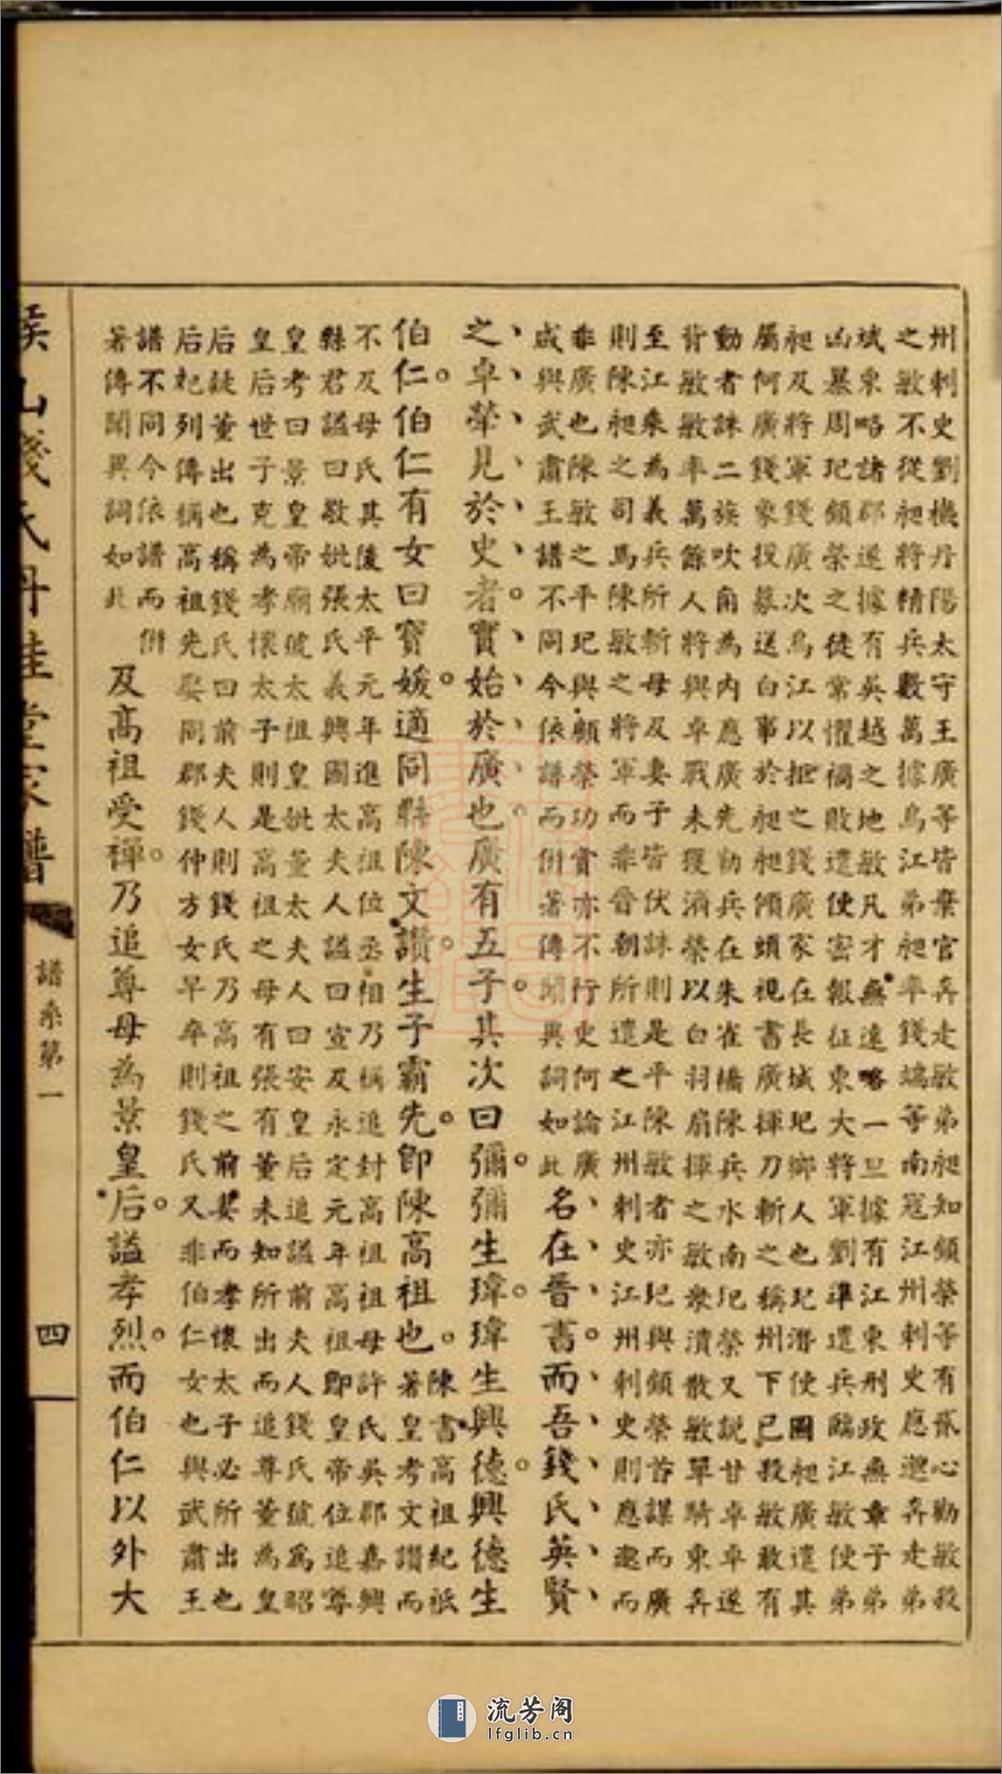 州刺史劉機丹陽太守王廣等皆棄官奔走敏弟昶知顧榮等有貳心勸敏殺
之敏不從昶將精兵數萬據烏江弟昶率錢端等南冦江州刺史應邈奔走弟
斌東略諸郡遂據有吳越之地敏凡才無遠略一旦據有江東刑政無章子弟
凶暴周玘顧榮之徒常懼禍敗遣使密報征東大將軍劉準遣兵臨江敏使弟
昶及將軍錢廣次烏江以拒之錢廣家在長城玘鄉人也玘潛使圖昶廣遣其
屬何廣錢象投募送白事於昶昶傾頭視書廣揮刀斬之稱州下已殺敏敢有
動者誅二族吹角為內應廣先勒兵在朱雀橋陳兵水南玘榮又說甘卓卓遂
背敏敏率萬餘人將與卓戰未獲濟榮以白羽扇揮之敏衆潰散敏單騎東奔
至江乘為義兵所斬母及妻子皆伏誅則是平陳敏者亦玘與顧榮首謀而廣
則陳昶之司馬陳敏之將軍而非晉朝所遣之江州刺史江州刺史則應邈而
非廣也陳敏之平玘與顧榮功賞亦不行史何論廣
咸與武肅王譜不同今依譜而併著傳聞異詞如此
名在晉書而吾錢氏英賢
之卓犖見於史者實始於廣也廣有五子其次曰彌彌生瑋瑋生興德興德生
伯仁伯仁有女曰寶媛適同縣陳文讚生子霸先即陳高祖也
陳書高祖紀祗
著皇考文讚而
不及母氏其陵太平元年進高祖位丞相乃稱追封高祖祖母許氏吳郡嘉興
縣君諡曰敬妣張氏義興國太夫人諡曰宣及永定元年高祖即皇帝位追尊
皇考曰景皇帝廟號太祖皇妣董太夫人曰安皇后追諡前夫人錢氏號為昭
皇后世子克為孝懷太子則是高祖之母有張有董未知所出而追尊董為皇
后疑董出也稱錢氏曰前夫人則錢氏乃高祖之前妻而孝懷太子必所出也
后妃列傳稱高祖先娶同郡錢仲方女早卒則錢氏又非伯仁女也與武肅王
譜不同今依譜而併
著傳聞異詞如此
及高祖受禪乃追尊母為景皇后諡孝烈而伯仁以外大
譜系第一
四